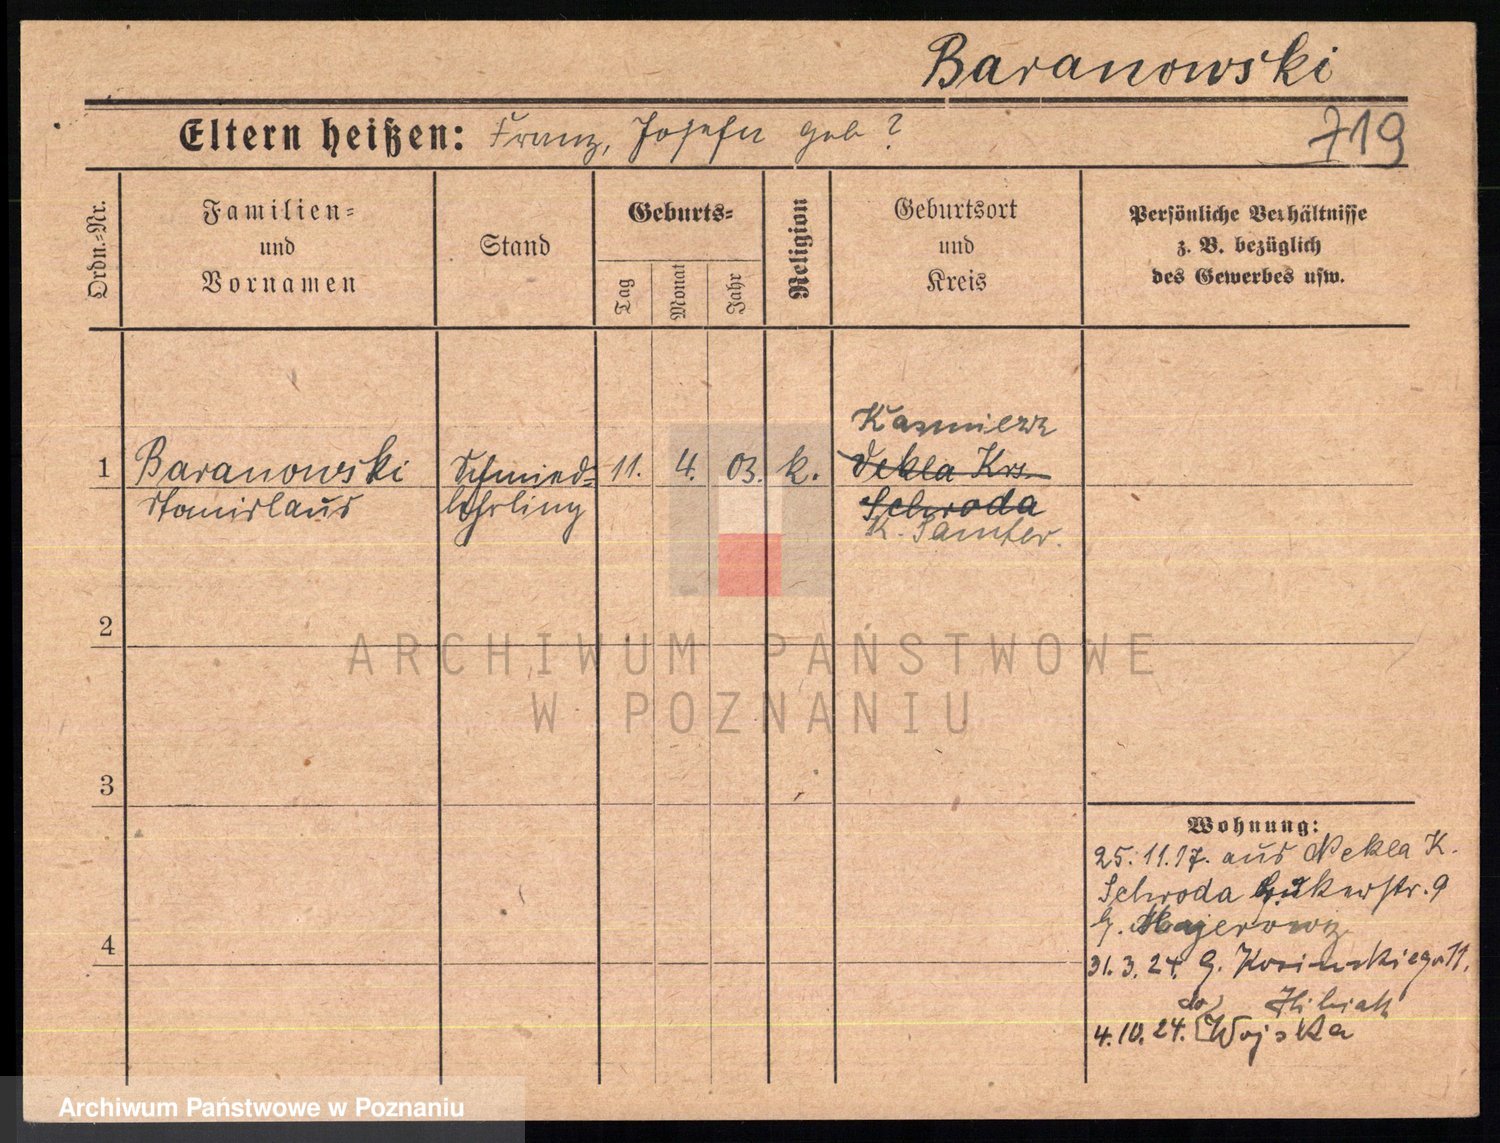 Baranowski
Eltern heißen: Franz, Josefa geb ?
719
Ordn.=Nr.
Familien=
und
Vornamen
Stand
Geburts=
Tag
Monat
Jahr
Religion
Geburtsort
und
Kreis
Persönliche Verhältnisse
z. B. bezüglich
des Gewerbes usw.
1
Baranowski
Stanislaus
Schmied=
lehrling
11. 4. 03. k.
Kazmierz
Nekla Krs.
Schroda
K. Samter.
2
3
4
Wohnung:
25.11.17. aus Nekla K.
Schroda
9
G. Majerowicz
31.3.24. G. Kosinskiego 11.
do
4.10.24. Wojska
ARCHIWUM PAŃSTWOWE
W POZNANIU
Archiwum Państwowe w Poznaniu